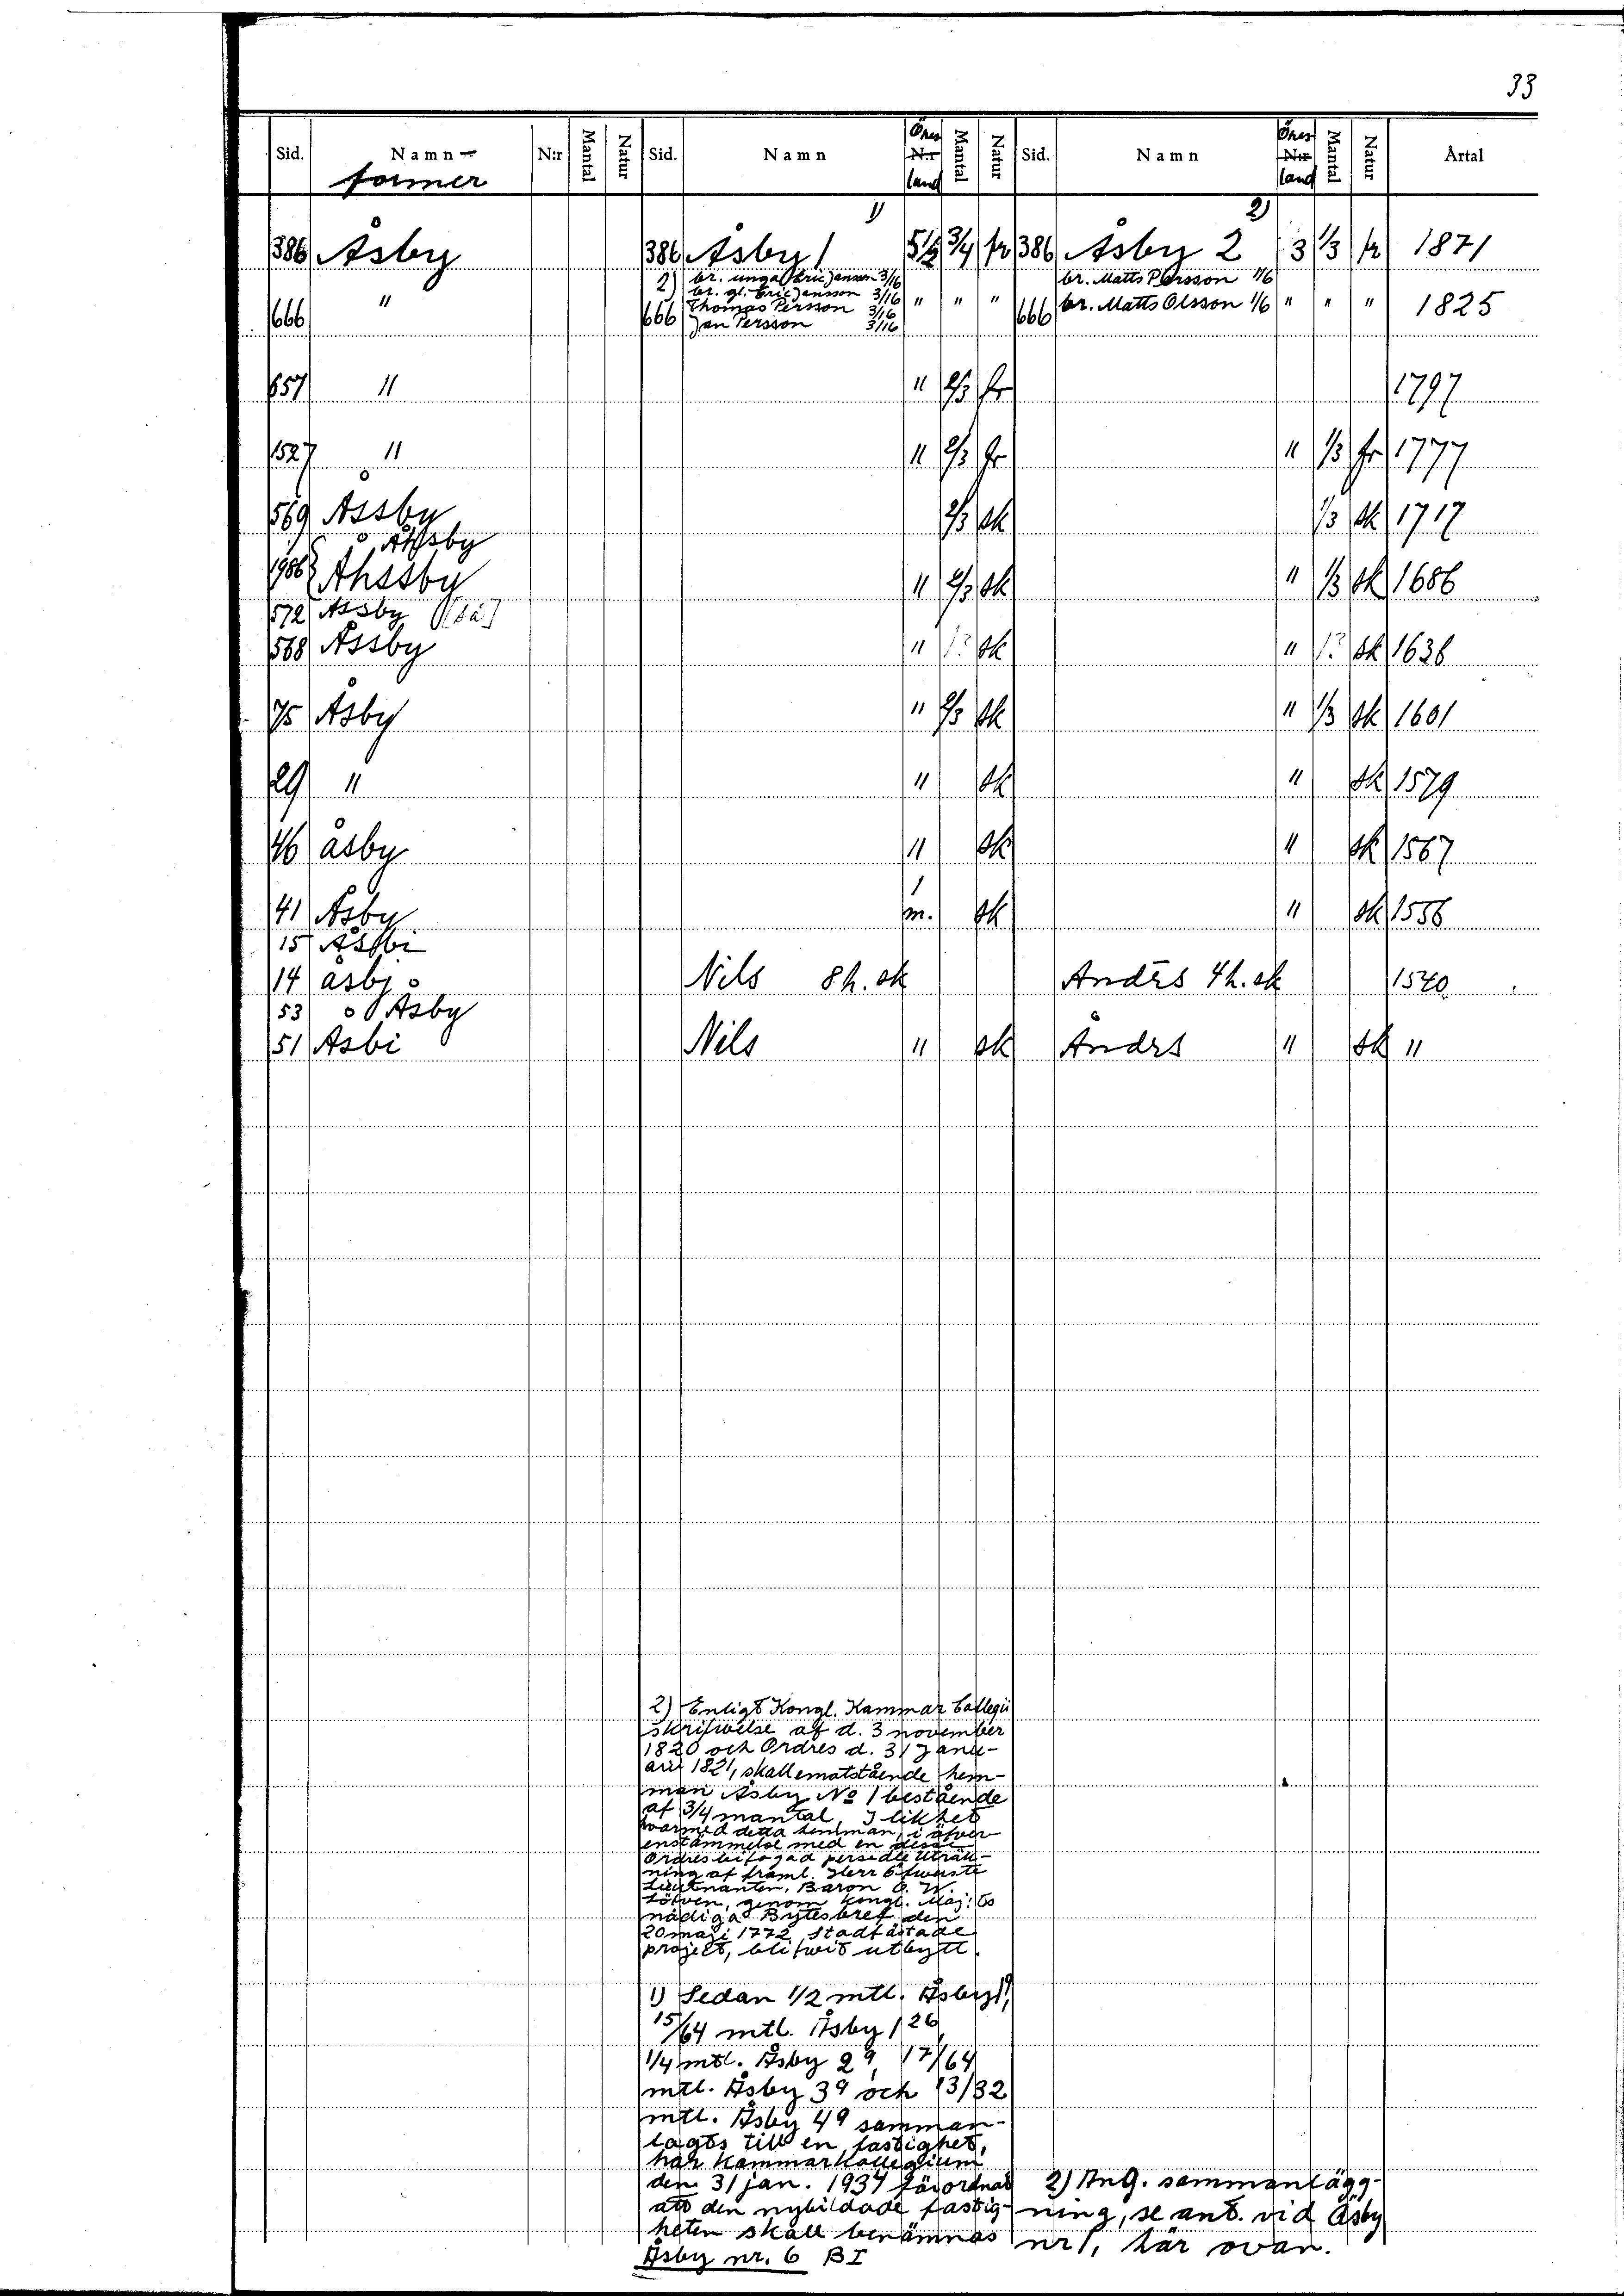 33
Sid. Namn- former N:r Mantal Natur Sid. Namn Öres N:r land Mantal Natur Sid. Namn Öres N:r land Mantal Natur Årtal
1) 2)
386 Åsby 386 Åsby 1 5 1/2 3/4 fr 386 Åsby 2 3 1/3 fr 1871
2) br. unga Eric Jansson 3/16 br. Matts Persson 1/6
br. gl. Eric Jansson 3/16
666 " 666 Thomas Persson 3/16 " " " 666 br. Matts Olsson 1/6 " " " 1825
Jan Persson 3/16
657 " " 2/3 fr 1797
1527 " " 2/3 fr " 1/3 fr 1777
569 Åssby 2/3 sk 1/3 sk 1717
Åhsby
1986 Åhssby " 2/3 sk " 1/3 sk 1686
572 Assby [så]
568 Åssby " 1? sk " 1? sk 1636
75 Åsby " 2/3 sk " 1/3 sk 1601
29 " " sk " sk 1579
46 åsby " sk " sk 1567
41 Åsby 1 m. sk " sk 1556
15 Åsbi
14 åsbj Nils 8 h. sk Andēs 4 h. sk 1540
53 Åsby
51 Åsbi Nils " sk Anders " sk "
2) Enligt Kongl. Kammar Collegii
skrifwelse af d. 3 november
1820 och Ordres d. 31 Janu-
arii 1821, skall ematstående hem-
man Åsby No 1 bestående
af 3/4 mantal. I likhet
hwarmed detta hemman, i öfver
enstämmelse med en desse
Ordres bifogad uträk-
ning af framl. Herr Öfwerste
Lieutnanten, Baron C. W.
Löfven, genom Kongl. Maj:ts
nådiga Bytesbref den
20 maji 1772 Stadfästade
project, blifwit utbytt.
1) Sedan 1/2 mtl. Åsby 1⁹,
15/64 mtl. Åsby 1 26,
1/4 mtl. Åsby 2⁹, 17/64
mtl. Åsby 3⁹ och 13/32
mtl. Åsby 4⁹ samman-
lagts till en fastighet,
har Kammarkollegium
den 31 jan. 1934 förordnat
att den nybildade fastig-
heten skall benämnas
Åsby nr. 6 BI
2) Ang. sammanlägg-
ning, se ant. vid Åsby
nr 1, här ovan.